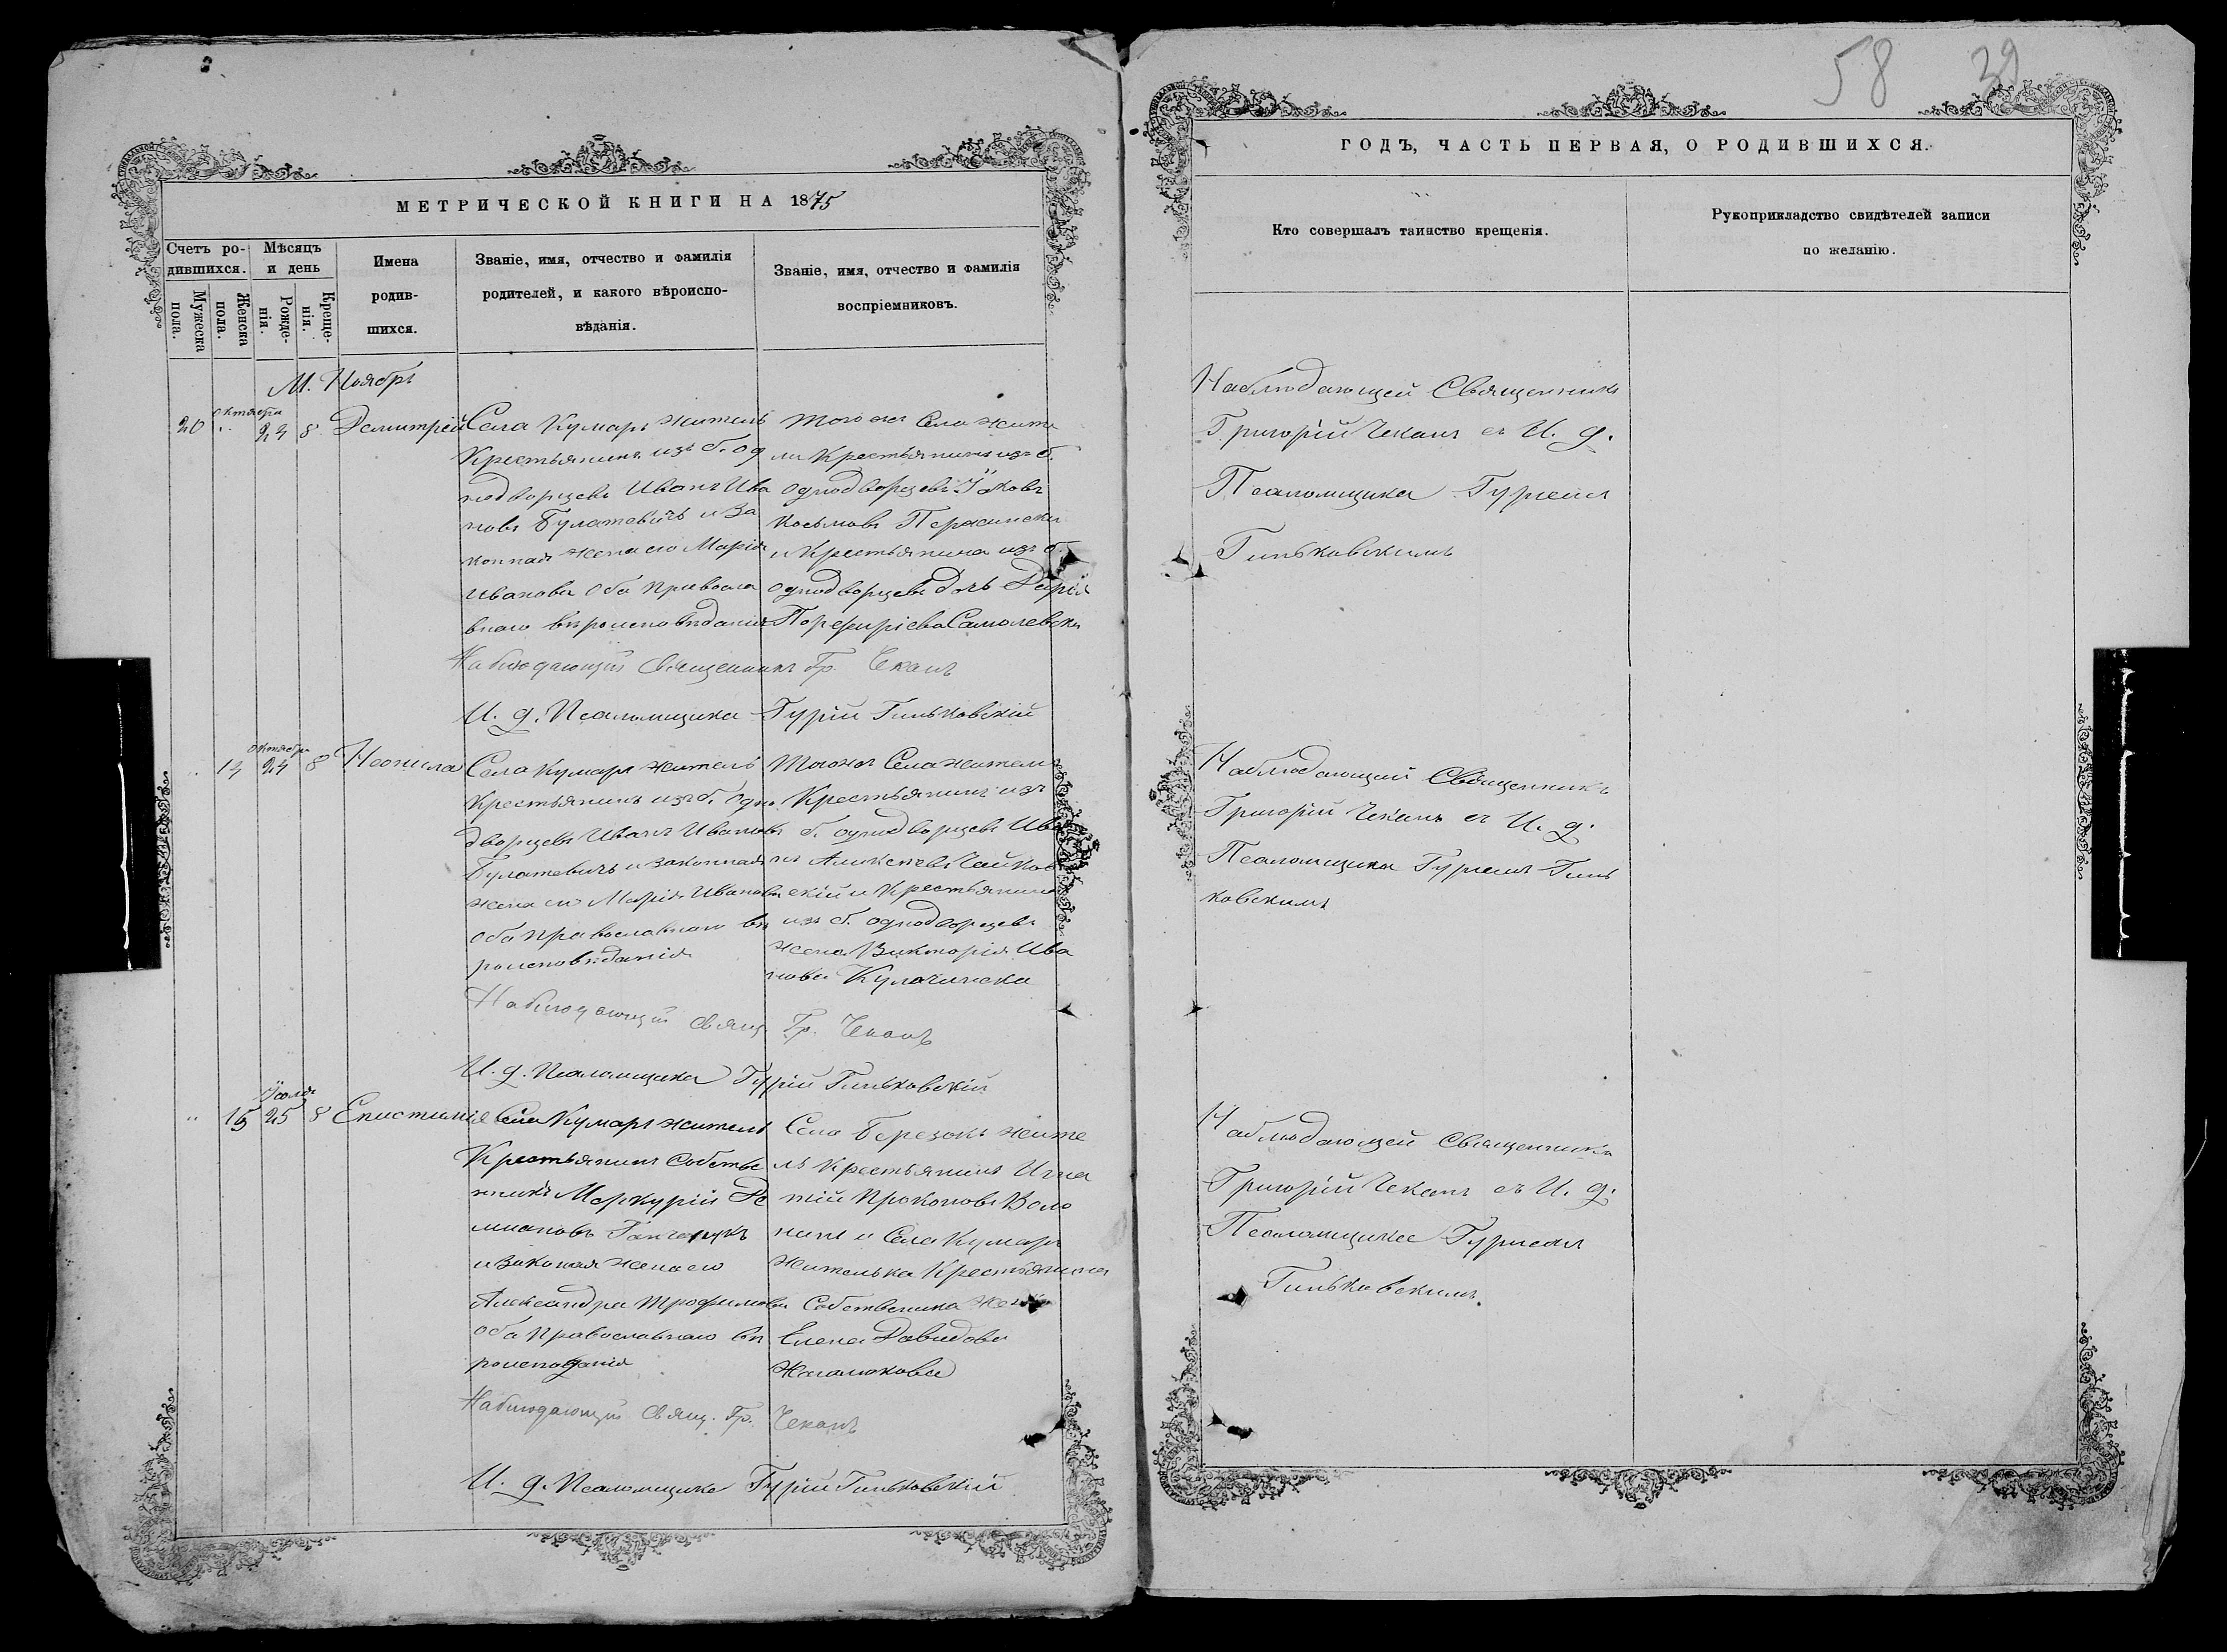 58 39
МЕТРИЧЕСКОЙ КНИГИ НА 1875
Счетъ ро-
дившихся.
Мѣсяцъ
и день
Мужеска
пола.
Женска
пола.
Рожде-
нія.
Креще-
нія.
Имена
родив-
шихся.
Званіе, имя, отчество и фамилія
родителей, и какого вѣроиспо-
вѣданія.
Званіе, имя, отчество и фамилія
воспріемниковъ.
М. Ноябрь
20 Октября 24 8 Демитрей
Села Кумаръ житель
Крестьянинъ изъ б. од
нодворцевъ Иванъ Ива
новъ Булатевичъ и За
конная жена его Марія
Иванова Оба Правосла
внаго вѣроисповѣданія
Того же Села жите
ли Крестьянинъ изъ б.
однодворцевъ Яковъ
Косьмовъ
и Крестьянина изъ б.
однодворцевъ дочь Дарія
Порфиріева
Наблюдающій Священникъ Гр. Чеканъ
И. д. Псаломщика Гурій Гиньковскій
14 Октября 24 8 Неонила
Села Кумаръ житель
Крестьянинъ изъ б. Одно
дворцевъ Иванъ Ивановъ
Булатевичъ и законная
жена его Марія Иванова
оба православнаго вѣ
роисповѣданія
Того же Села житель
Крестьянинъ изъ
б. однодворцевъ Ива
нъ Чайков
скій и Крестьянина
изъ б. однодворцевъ
жена Викторія Ива
нова
Наблюдающій Свящ. Гр. Чеканъ
И. д. Псаломщика Гурій Гиньковскій
15 25 8 Епистимія
Села Кумаръ житель
Крестьянинъ Собстве
нникъ Меркурій Де
миановъ Ганчарукъ
и Законая жена его
Александра Трофимова
оба Православнаго вѣ
роисповданія
Села Березокъ жите
ль Крестьянинъ Игна
тій Прокоповъ Воло
нинъ и Села Кумаръ
жителька Крестьянина
Собственика жена
Елена Давидова
Наблюдающій Свящ. Гр. Чеканъ
И. д. Псаломщика Гурій Гиньковскій
ГОДЪ, ЧАСТЬ ПЕРВАЯ, О РОДИВШИХСЯ.
Кто совершалъ таинство крещенія.
Рукоприкладство свидѣтелей записи
по желанію.
Наблюдающей Священникъ
Григорій Чеканъ съ И. д.
Псаломщика Гуріемъ
Гиньковскимъ
Наблюдающій Священникъ
Григорій Чеканъ съ И. д.
Псаломщика Гуріемъ Гинь
ковскимъ
Наблюдающей Священникъ
Григорій Чеканъ съ И. д.
Псаломщика Гуріемъ
Гиньковскимъ.